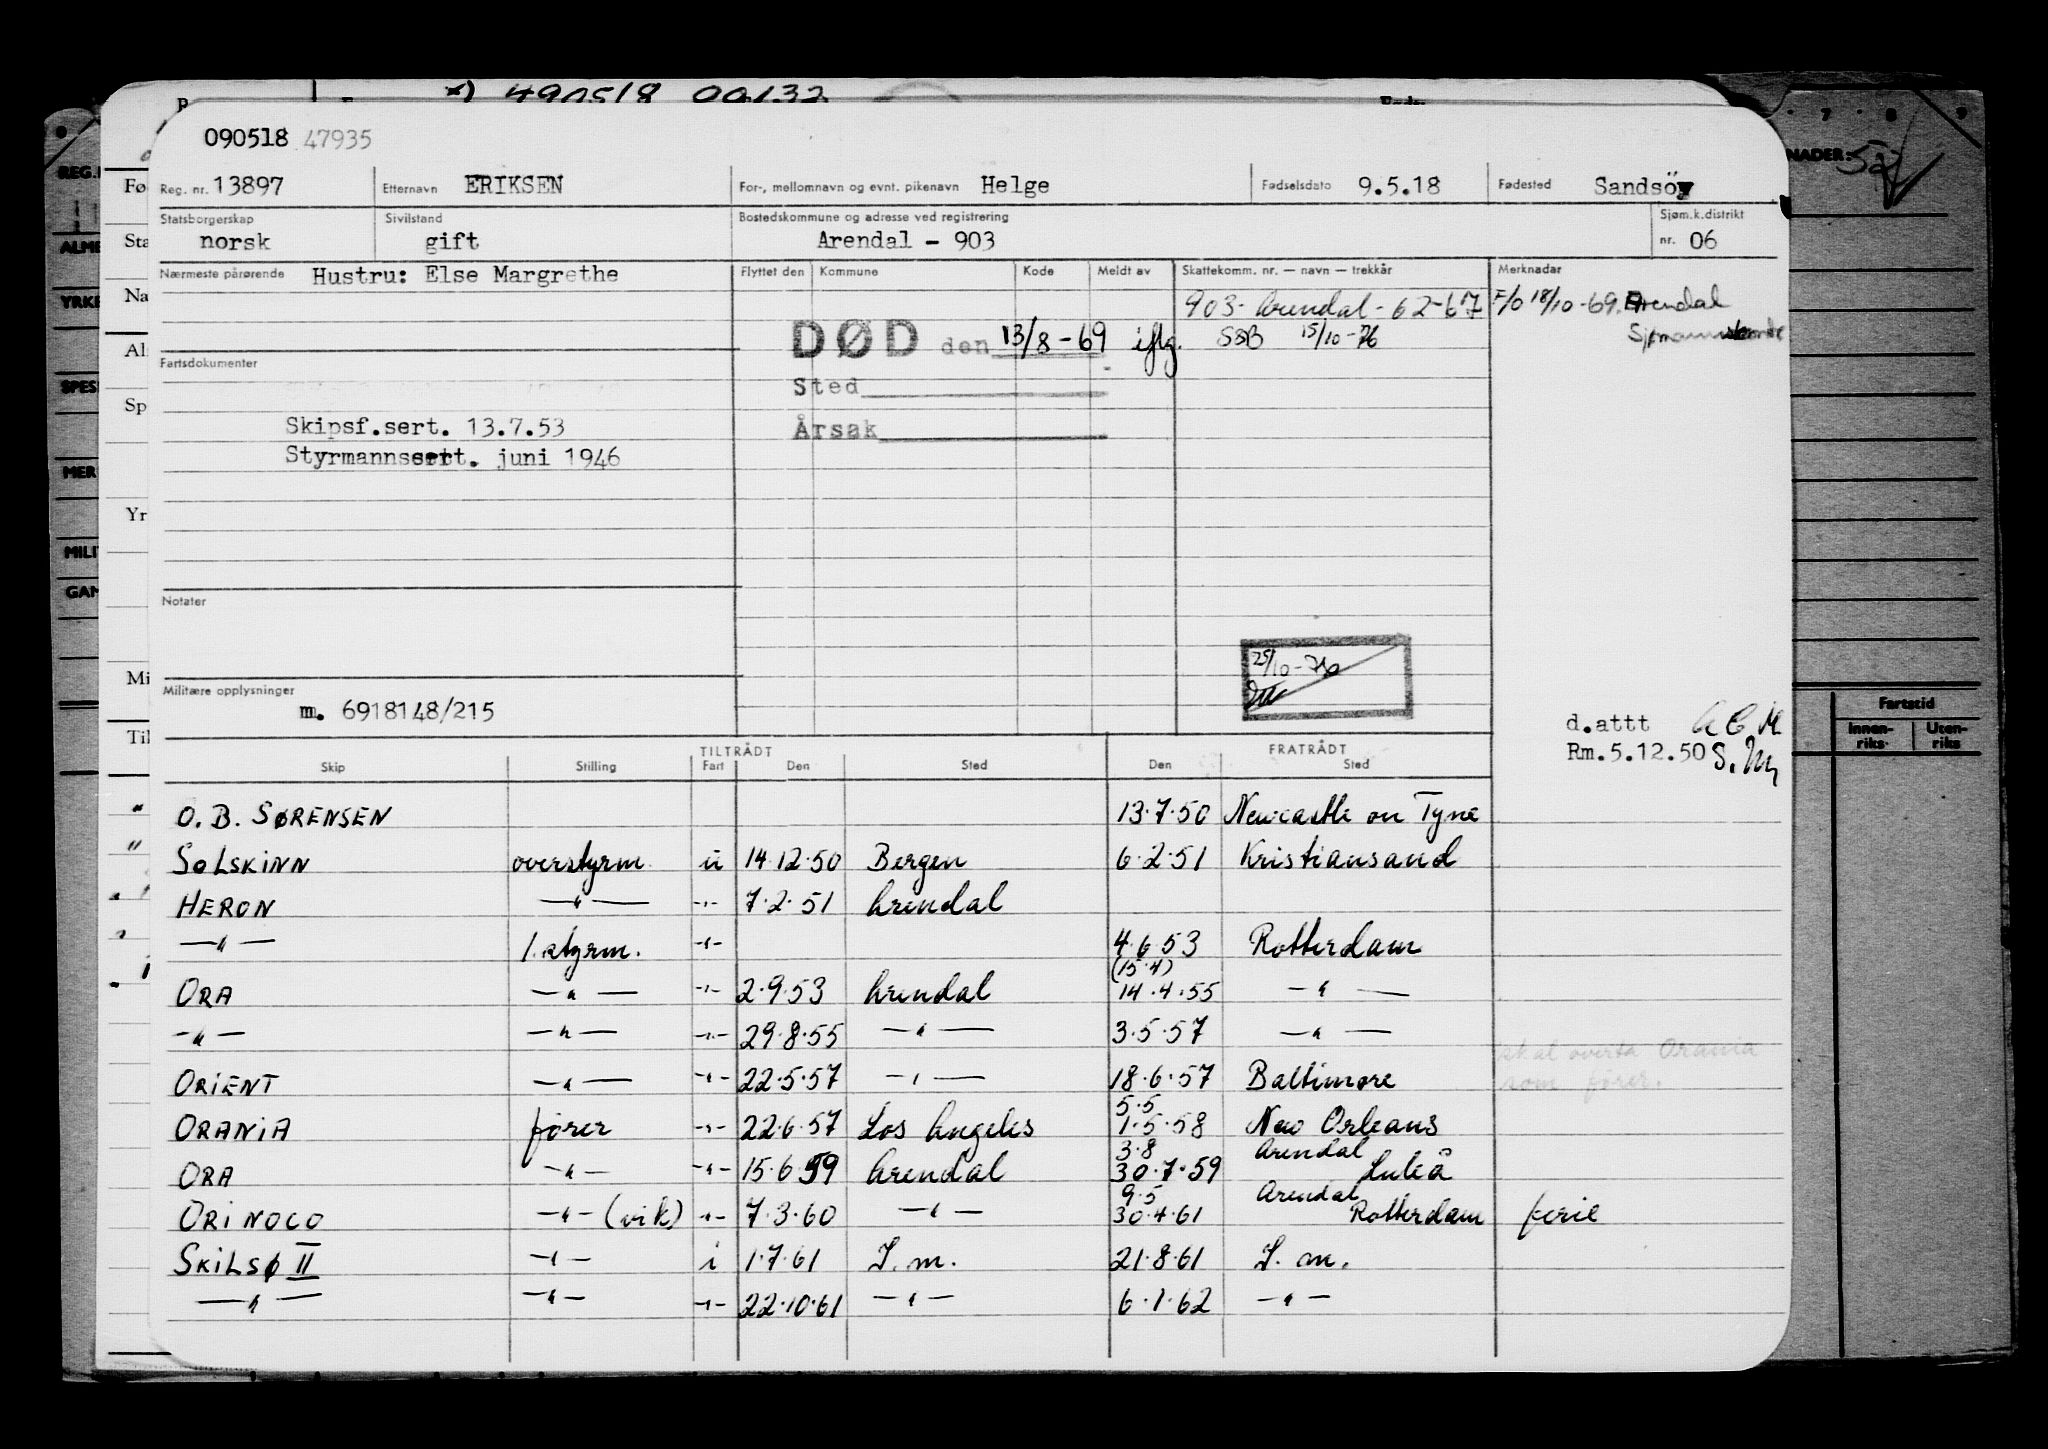 *) 490518 00132
090518 47935
Reg. nr. 13897 Etternavn ERIKSEN For-, mellomnavn og evnt. pikenavn Helge Fødselsdato 9.5.18 Fødested Sandsöy
Statsborgerskap Sivilstand Bostedskommune og adresse ved registrering Sjøm.k.distrikt
norsk gift Arendal - 903 nr. 06
Nærmeste pårørende Hustru: Else Margrethe Flyttet den Kommune Kode Meldt av Skattekomm. nr. — navn — trekkår Merknadar
903- Arendal - 62-67 F/O 18/10-69. Arendal
DØD den 13/8-69 iflg. SSB 15/10-76
Fartsdokumenter
Sted
Skipsf.sert. 13.7.53
Årsak
Styrmannssert. juni 1946
Notater
25/10-76
Militære opplysninger
m. 6918148/215
d.attt
Rm.5.12.50
TILTRÅDT FRATRÅDT
Skip Stilling Fart Den Sted Den Sted
" O. B. SØRENSEN 13.7.50 Newcastle on Tyne
" SOLSKINN overstyrm. u 14.12.50 Bergen 6.2.51 Kristiansand
HERON —"— -"- 7.2.51 Arendal
—"— 1.styrm. -"- 4.6.53 Rotterdam
(15.4)
ORA —"— -"- 2.9.53 Arendal 14.4.55 —"—
—"— —"— -"- 29.8.55 —"— 3.5.57 —"—
skal overta Orania
ORIENT —"— -"- 22.5.57 —"— 18.6.57 Baltimore som fører.
5.5
ORANIA fører -"- 22.6.57 Los Angeles 1.5.58 New Orleans
3.8 Arendal
ORA —"— -"- 15.6.59 Arendal 30.7.59 Luleå
9.5 Arendal
ORINOCO —"— (vik) -"- 7.3.60 —"— 30.4.61 Rotterdam ferie
SKILSØ II —"— i 1.7.61 I. m. 21.8.61 I. m.
—"— —"— -"- 22.10.61 —"— 6.1.62 —"—
Fø
Sta
Na
Al
Sp
Yr
Mi
Til
REG.
ALME
YRKE
SPES
MER
MILIT
GAN
7 8 9
NADER: 52
Fartstid
Innen-
riks
Uten-
riks